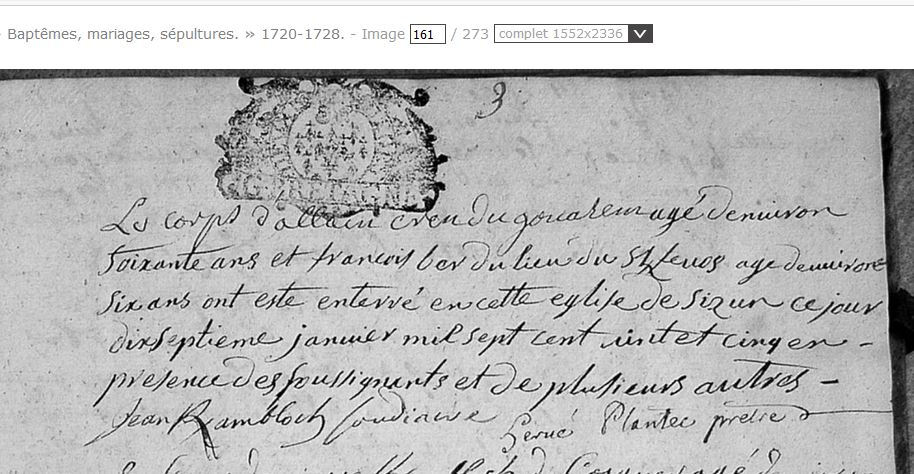 Baptêmes, mariages, sépultures. » 1720-1728. - Image 161 / 273 complet 1552x2336
3
Le corps d'allain cren du goualenn agé denuiron
soixante ans et francois ber du lieu du agé denuiron
six ans ont esté enterré en cette eglise de sizun ce jour
dixseptieme januier mil sept cent uint et cinq en -
presence des soussignants et de plusieurs autres -
Jean Rambloch soudiacre Herué Plantec pretre